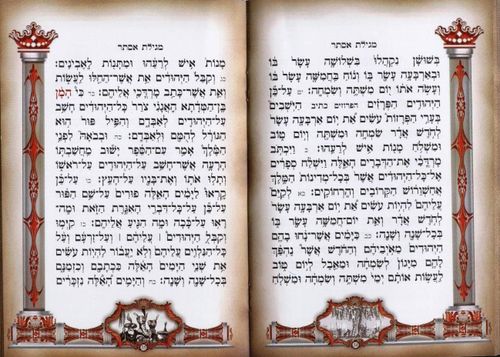 מגילת אסתר
בְּשׁוּשָׁן נִקְהֲלוּ בִּשְׁלוֹשָׁה עָשָׂר בּוֹ
וּבְאַרְבָּעָה עָשָׂר בּוֹ וְנוֹחַ בַּחֲמִשָּׁה עָשָׂר בּוֹ
וְעָשֹׂה אֹתוֹ יוֹם מִשְׁתֶּה וְשִׂמְחָה: יט עַל־כֵּן
הַיְּהוּדִים הַפְּרָזִים הפרוזים כתיב הַיֹּשְׁבִים
בְּעָרֵי הַפְּרָזוֹת עֹשִׂים אֵת יוֹם אַרְבָּעָה עָשָׂר
לְחֹדֶשׁ אֲדָר שִׂמְחָה וּמִשְׁתֶּה וְיוֹם טוֹב
וּמִשְׁלֹחַ מָנוֹת אִישׁ לְרֵעֵהוּ: כ וַיִּכְתֹּב
מָרְדֳּכַי אֶת־הַדְּבָרִים הָאֵלֶּה וַיִּשְׁלַח סְפָרִים
אֶל־כָּל־הַיְּהוּדִים אֲשֶׁר בְּכָל־מְדִינוֹת הַמֶּלֶךְ
אֲחַשְׁוֵרוֹשׁ הַקְּרוֹבִים וְהָרְחוֹקִים: כא לְקַיֵּם
עֲלֵיהֶם לִהְיוֹת עֹשִׂים אֵת יוֹם אַרְבָּעָה עָשָׂר
לְחֹדֶשׁ אֲדָר וְאֵת יוֹם־חֲמִשָּׁה עָשָׂר בּוֹ
בְּכָל־שָׁנָה וְשָׁנָה: כב כַּיָּמִים אֲשֶׁר־נָחוּ בָהֶם
הַיְּהוּדִים מֵאוֹיְבֵיהֶם וְהַחֹדֶשׁ אֲשֶׁר נֶהְפַּךְ
לָהֶם מִיָּגוֹן לְשִׂמְחָה וּמֵאֵבֶל לְיוֹם טוֹב
לַעֲשׂוֹת אוֹתָם יְמֵי מִשְׁתֶּה וְשִׂמְחָה וּמִשְׁלֹחַ
מגילת אסתר
מָנוֹת אִישׁ לְרֵעֵהוּ וּמַתָּנוֹת לָאֶבְיֹנִים:
כג וְקִבֵּל הַיְּהוּדִים אֵת אֲשֶׁר־הֵחֵלּוּ לַעֲשׂוֹת
וְאֵת אֲשֶׁר־כָּתַב מָרְדֳּכַי אֲלֵיהֶם: כד כִּי הָמָן
בֶּן־הַמְּדָתָא הָאֲגָגִי צֹרֵר כָּל־הַיְּהוּדִים חָשַׁב
עַל־הַיְּהוּדִים לְאַבְּדָם וְהִפִּיל פּוּר הוּא
הַגּוֹרָל לְהֻמָּם וּלְאַבְּדָם: כה וּבְבֹאָהּ לִפְנֵי
הַמֶּלֶךְ אָמַר עִם־הַסֵּפֶר יָשׁוּב מַחֲשַׁבְתּוֹ
הָרָעָה אֲשֶׁר־חָשַׁב עַל־הַיְּהוּדִים עַל־רֹאשׁוֹ
וְתָלוּ אֹתוֹ וְאֶת־בָּנָיו עַל־הָעֵץ: כו עַל־כֵּן
קָרְאוּ לַיָּמִים הָאֵלֶּה פוּרִים עַל־שֵׁם הַפּוּר
עַל־כֵּן עַל־כָּל־דִּבְרֵי הָאִגֶּרֶת הַזֹּאת וּמָה־
רָאוּ עַל־כָּכָה וּמָה הִגִּיעַ אֲלֵיהֶם: כז קִיְּמוּ
וְקִבְּלֻ הַיְּהוּדִים ׀ עֲלֵיהֶם ׀ וְעַל־זַרְעָם וְעַל
כָּל־הַנִּלְוִים עֲלֵיהֶם וְלֹא יַעֲבוֹר לִהְיוֹת עֹשִׂים
אֵת שְׁנֵי הַיָּמִים הָאֵלֶּה כִּכְתָבָם וְכִזְמַנָּם
בְּכָל־שָׁנָה וְשָׁנָה: כח וְהַיָּמִים הָאֵלֶּה נִזְכָּרִים